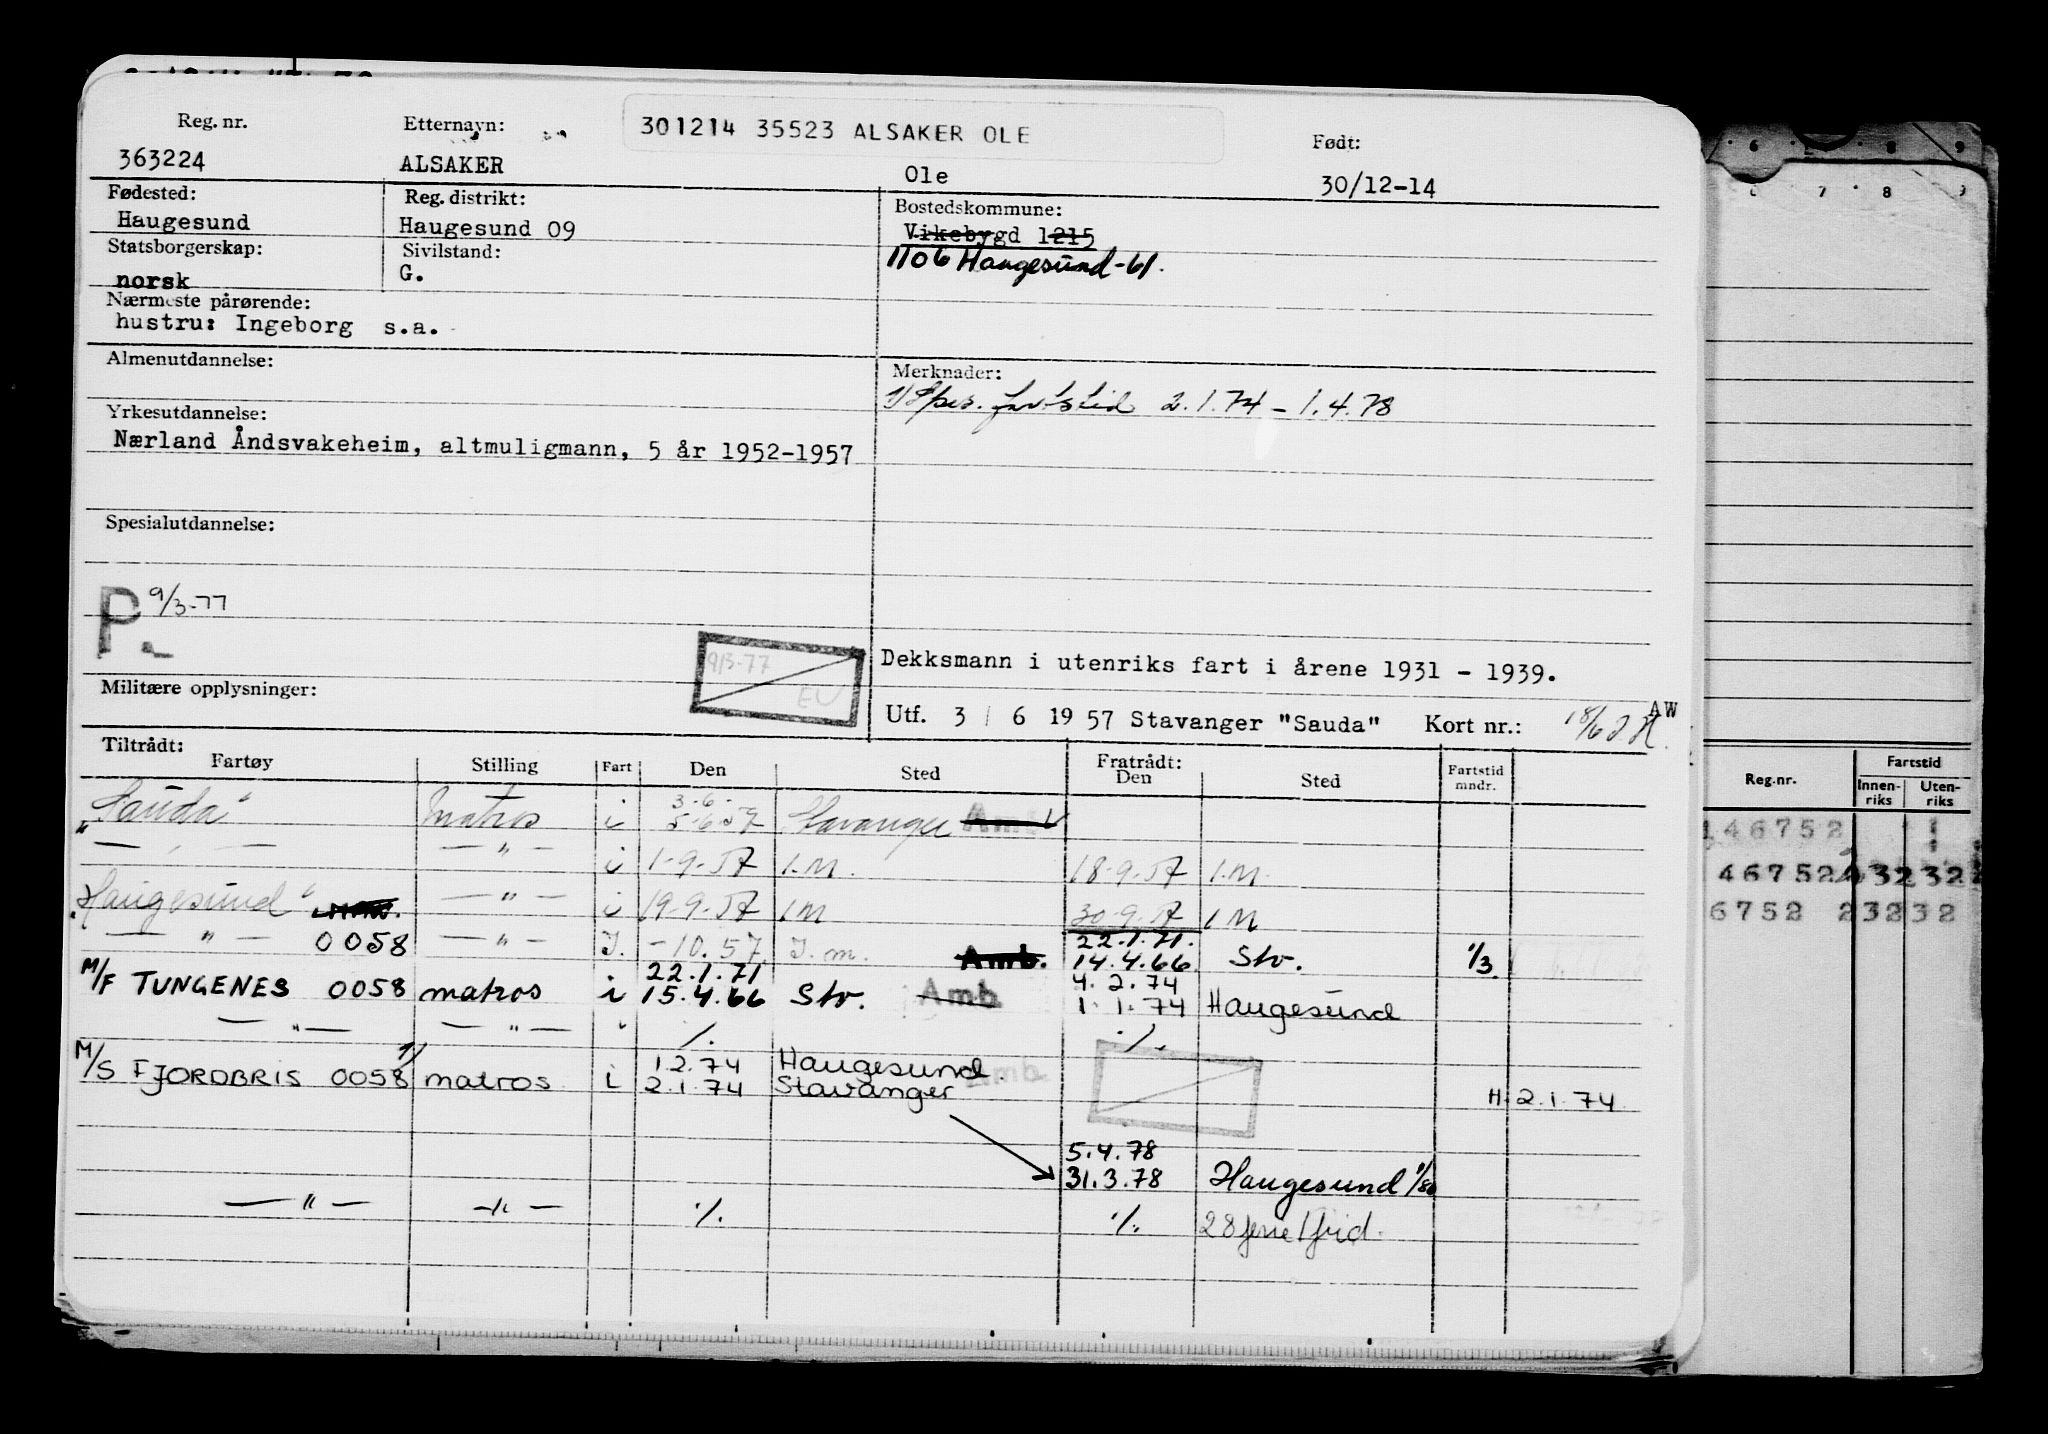 Reg. nr.
Etternavn:
301214 35523 ALSAKER OLE
Født:
363224
ALSAKER
Ole
30/12-14
Fødested:
Reg. distrikt:
Bostedskommune:
Haugesund
Haugesund 09
Vikebygd 1215
Statsborgerskap:
Sivilstand:
1106 Haugesund-61.
norsk
G.
Nærmeste pårørende:
hustru: Ingeborg s.a.
Almenutdannelse:
Merknader:
1) Spes. fartstid 2.1.74 - 1.4.78
Yrkesutdannelse:
Nærland Åndsvakeheim, altmuligmann, 5 år 1952-1957
Spesialutdannelse:
P 9/3-77
9/3-77
EU
Dekksmann i utenriks fart i årene 1931 - 1939.
Militære opplysninger:
AW
Utf. 3 / 6 19 57 Stavanger "Sauda" Kort nr.: 18/6
Tiltrådt:
Fratrådt:
Fartøy Stilling Fart Den Sted Den Sted Fartstid mndr.
3.6.
"Sauda" Matros i 5.6.57 Stavanger Amb
— " — — " — i 1.9.57 I.M. 18.9.57 I.M.
"Haugesund" — " — i 19.9.57 I M 30.9.57 I M
22.1.71.
— " — 0058 — " — I. -10.57 I.m. Amb. 14.4.66 Stv. 1/3
22.1.71 4.2.74
M/F TUNGENES 0058 matros i 15.4.66 Stv. Amb 1.1.74 Haugesund
— " — — " — " ./. ./.
1) 1.2.74 Haugesund
M/S FJORDBRIS 0058 matros i 2.1.74 Stavanger Amb. H. 2.1.74
5.4.78
31.3.78 Haugesund 1/80
— " — — " — ./. ./. 28 ferie/frid.
6 7 8 9
7 8 9
Reg.nr.
Fartstid
Innen-riks
Uten-riks
46752
46752 232 32
6752 23232